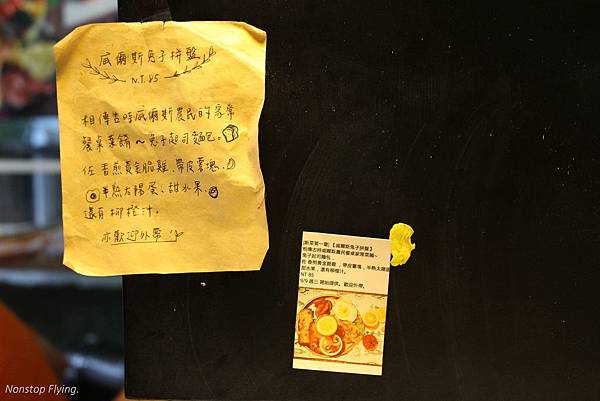 威爾斯兔子拼盤
N.T. 85
相傳古時威爾斯農民的家常
餐桌菜餚～兔子起司麵包。
佐香煎黃金脆雞、帶皮薯塊、
半熟太陽蛋、甜水果、
還有柳橙汁。
亦歡迎外帶
[新菜第一章]【威爾斯兔子拼盤】
相傳古時威爾斯農民餐桌家常菜餚~
兔子起司麵包，
佐 香煎黃金脆雞，帶皮薯塊，半熟太陽蛋
甜水果，還有柳橙汁。
NT 85
9/9 週三 開始提供。歡迎外帶。
Nonstop Flying.